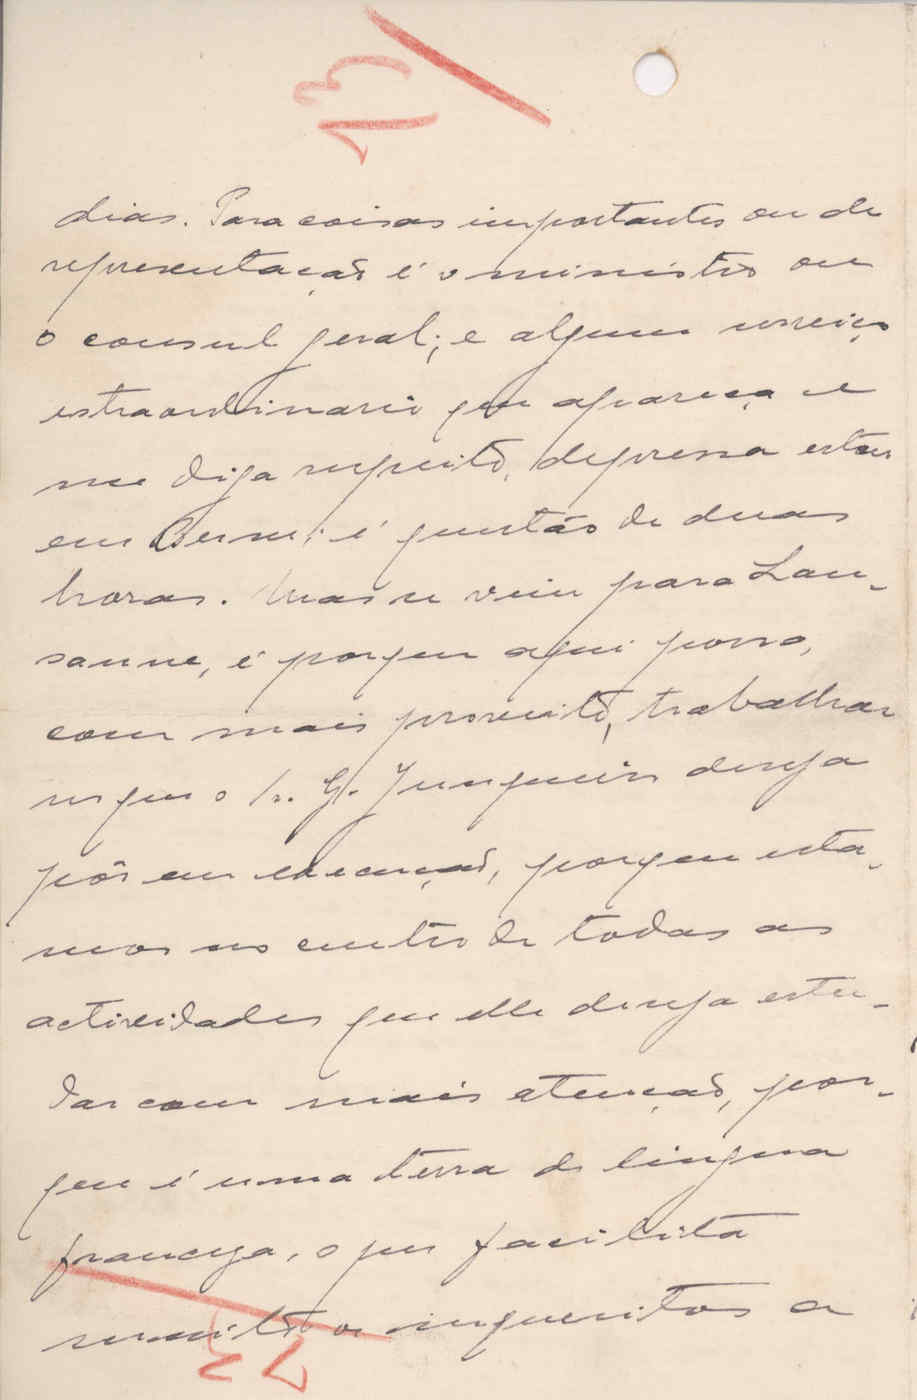 13
dias. Para coisas importantes ou de
representação é o ministro ou
o consul geral; e algum serviço
extraordinario que apareça e
me diga respeito, depressa estou
em Berne; é questão de duas
horas. Mas se vim para Lau-
sanne, é porque aqui posso,
com mais proveito, trabalhar
no que o Sr. G. Junqueiro deseja
pôr em execução, porque esta-
mos no centro de todas as
actividades que elle deseja estu-
dar com mais atenção, por-
que é uma terra de lingua
franceza, o que facilita
muito os inqueritos a